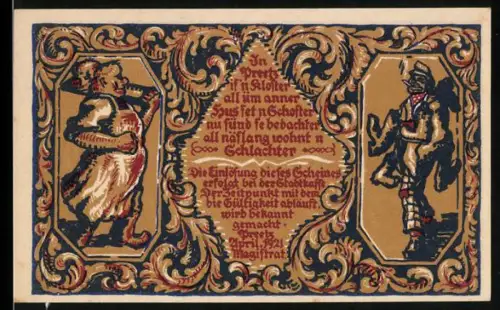 In
Preetz
is'n Kloster
all üm anner
Hus set n Schoster
nu sünd se bedachter
all näslang wohnt n
Schlachter
Die Einlösung dieses Scheines
erfolgt bei der Stadtkasse
Der Zeitpunkt mit dem
die Gültigkeit abläuft
wird bekannt
gemacht
Preetz
April 1921
Magistrat